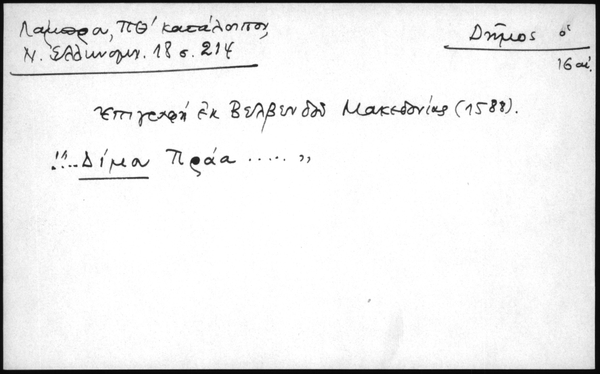 Λαμπρα, ΠΘ' κατάλοιπον,
Ν. Ελληνομν. 18 σ. 214
Δῆμος ὁ
16 αἰ.
Ἐπιγραφή ἐκ Βελβενδοῦ Μακεδονίας (1588).
"... Δίμα Πράα ..... "